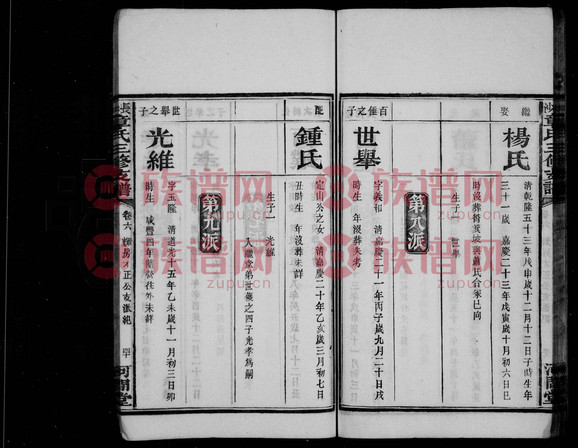 繼娶
楊氏
清乾隆五十三年戊申歲十二月十二日子時生年
三十一歲 嘉慶二十三年戊寅歲十月初六日巳
時沒葬
生子一 世舉
第八派
百維之子
世舉
字義和 清嘉慶二十一年丙子歲九月二十日戌
時生 年沒葬失考
配
鍾氏
定山公之女 清嘉慶二十年乙亥歲三月初七日
丑時生 年沒葬未詳
生子一 光維
入繼堂弟世義之四子光孝為嗣
第九派
世舉之子
光維
字玉隆 清道光十五年乙未歲十一月初三日卯
時生 咸豐四年
往外未詳
章氏三修支譜
卷六
河間堂
族谱网
zupu.cn